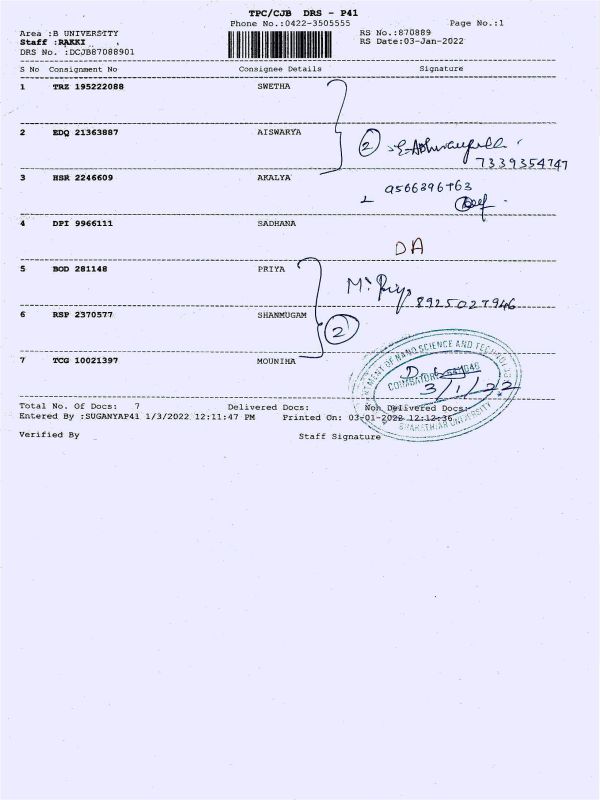 TPC/CJB DRS - P41
Phone No.:0422-3505555 Page No.:1
Area :B UNIVERSITY RS No.:870889
Staff :RAKKI RS Date:03-Jan-2022
DRS No. :DCJB87088901
S No Consignment No Consignee Details Signature
1 TRZ 195222088 SWETHA
2 EDQ 21363887 AISWARYA 2
7339354747
3 HSR 2246609 AKALYA
9566396763
4 DPI 9966111 SADHANA
DA
5 BOD 281148 PRIYA
M. Priya
8925027946
6 RSP 2370577 SHANMUGAM
2
7 TCG 10021397 MOUNIHA
DEPARTMENT OF NANO SCIENCE AND TECHNOLOGY
COIMBATORE 641046
3/1/22
BHARATHIAR UNIVERSITY
Total No. Of Docs: 7 Delivered Docs: Non Delivered Docs:
Entered By :SUGANYAP41 1/3/2022 12:11:47 PM Printed On: 03-01-2022 12:12:36
Verified By Staff Signature